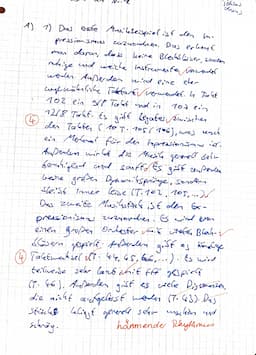 1) 1) Das erste Musikbeispiel ist dem Im-
pressionismus zuzuordnen. Das erkennt
man daran, dass keine Blechbläser, sondern
ruhige und weiche Instrumente verwendet
werden. Außerdem wird eine
ungewöhnliche Taktart verwendet. In Takt
102 ein 5/8 Takt und in 103 ein
12/8 Takt. Es gibt legatos zwischen
den Takten (z.B. T. 105/106), was auch
4
ein Merkmal für den Impressionismus ist.
Außerdem wirkt die Musik generell sehr
und sanft. Es gibt außerdem
keine großen Dynamiksprünge, sondern
bleibt immer leise (T. 102, 103, ...).
Das zweite Musikstück ist dem Ex-
pressionismus zuzuordnen. Es wird von
einem großen Orchester mit vielen Blech-
bläsern gespielt. Außerdem gibt es häufige
4
Taktwechsel (T. 44, 45, 46, ...). Es wird
teilweise sehr laut mit fff gespielt
(T. 46). Außerdem gibt es viele Dissonanzen,
die nicht aufgelöst werden (T. 43). Das
Stück klingt generell sehr und
schräg. hämmernder Rhythmus